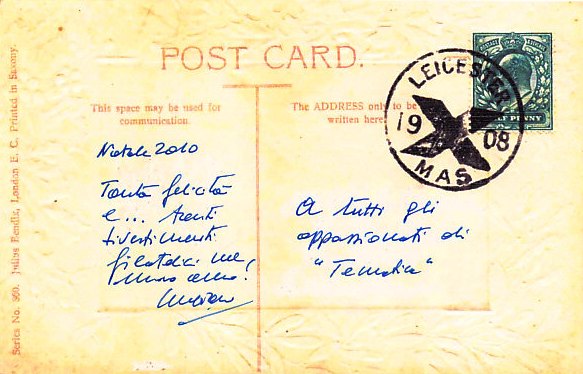 POST CARD.
This space may be used for
communication.
The ADDRESS only to be
written here.
LEICESTER
19 08
X
MAS
HALF PENNY
Natale 2010
Tanta felicità
e... tanti
divertimenti
filatelici nel
nuovo anno!
A tutti gli
appassionati di
"Tematica"
Series No. 950. Julius Bendix, London E. C. Printed in Saxony.